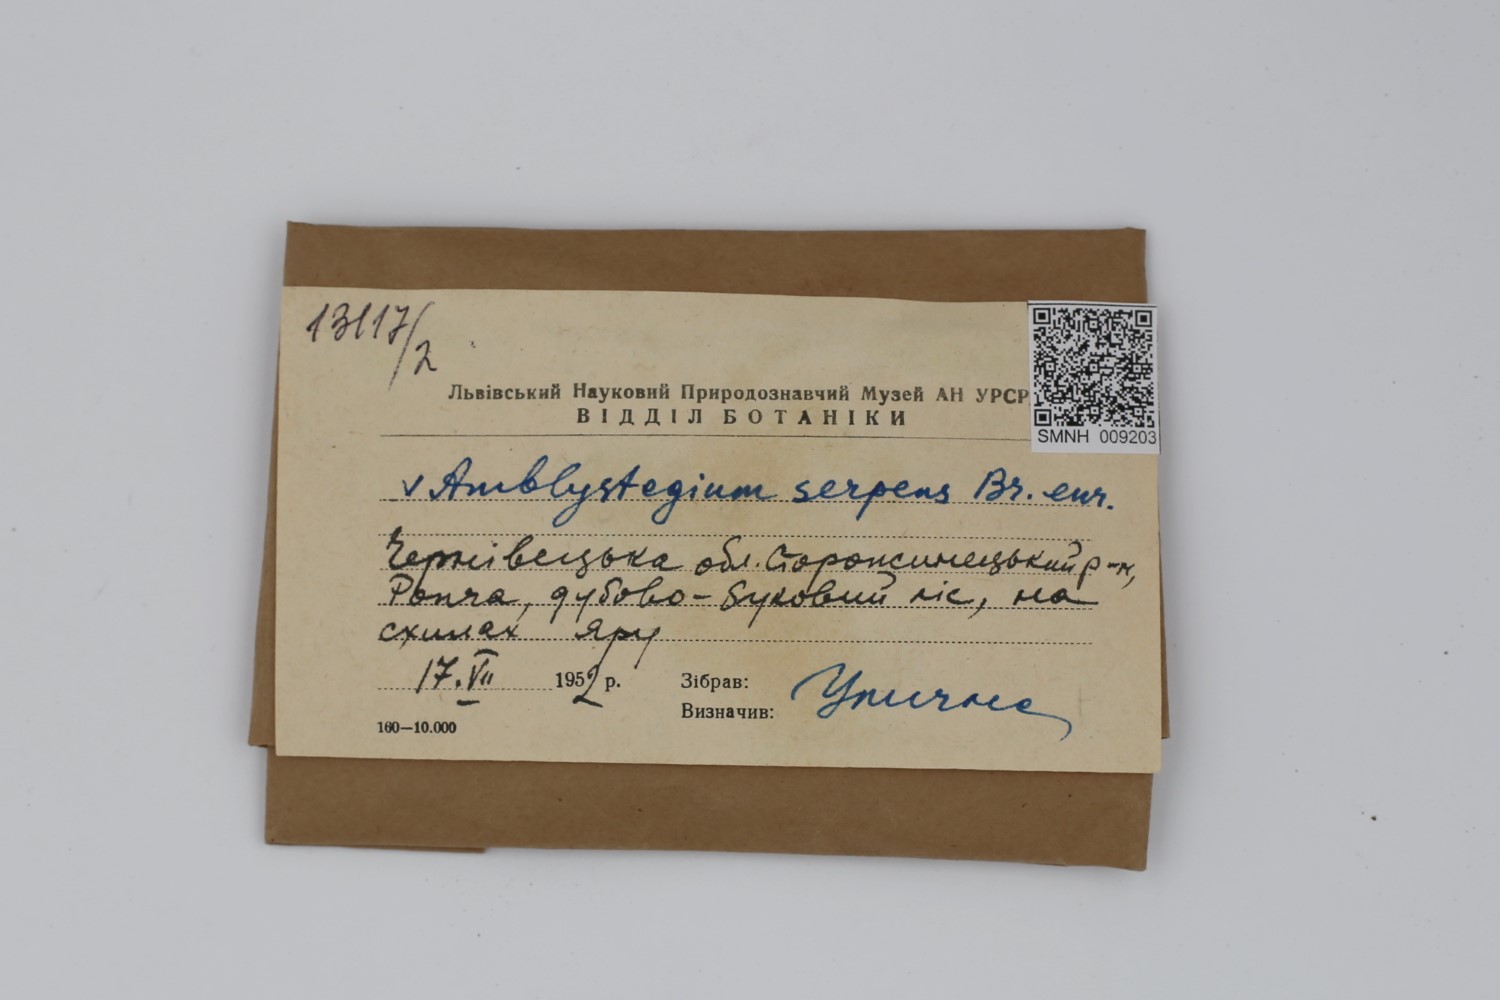 13117/2
Львівський Науковий Природознавчий Музей АН УРСР
ВІДДІЛ БОТАНІКИ
SMNH 009203
v Amblystegium serpens Br. eur.
Чернівецька обл. Сторожинецький р-н,
Ропча, дубово-буковий ліс, на
схилах яру
17.VII 1952 р.
Зібрав:
Визначив:
160—10.000